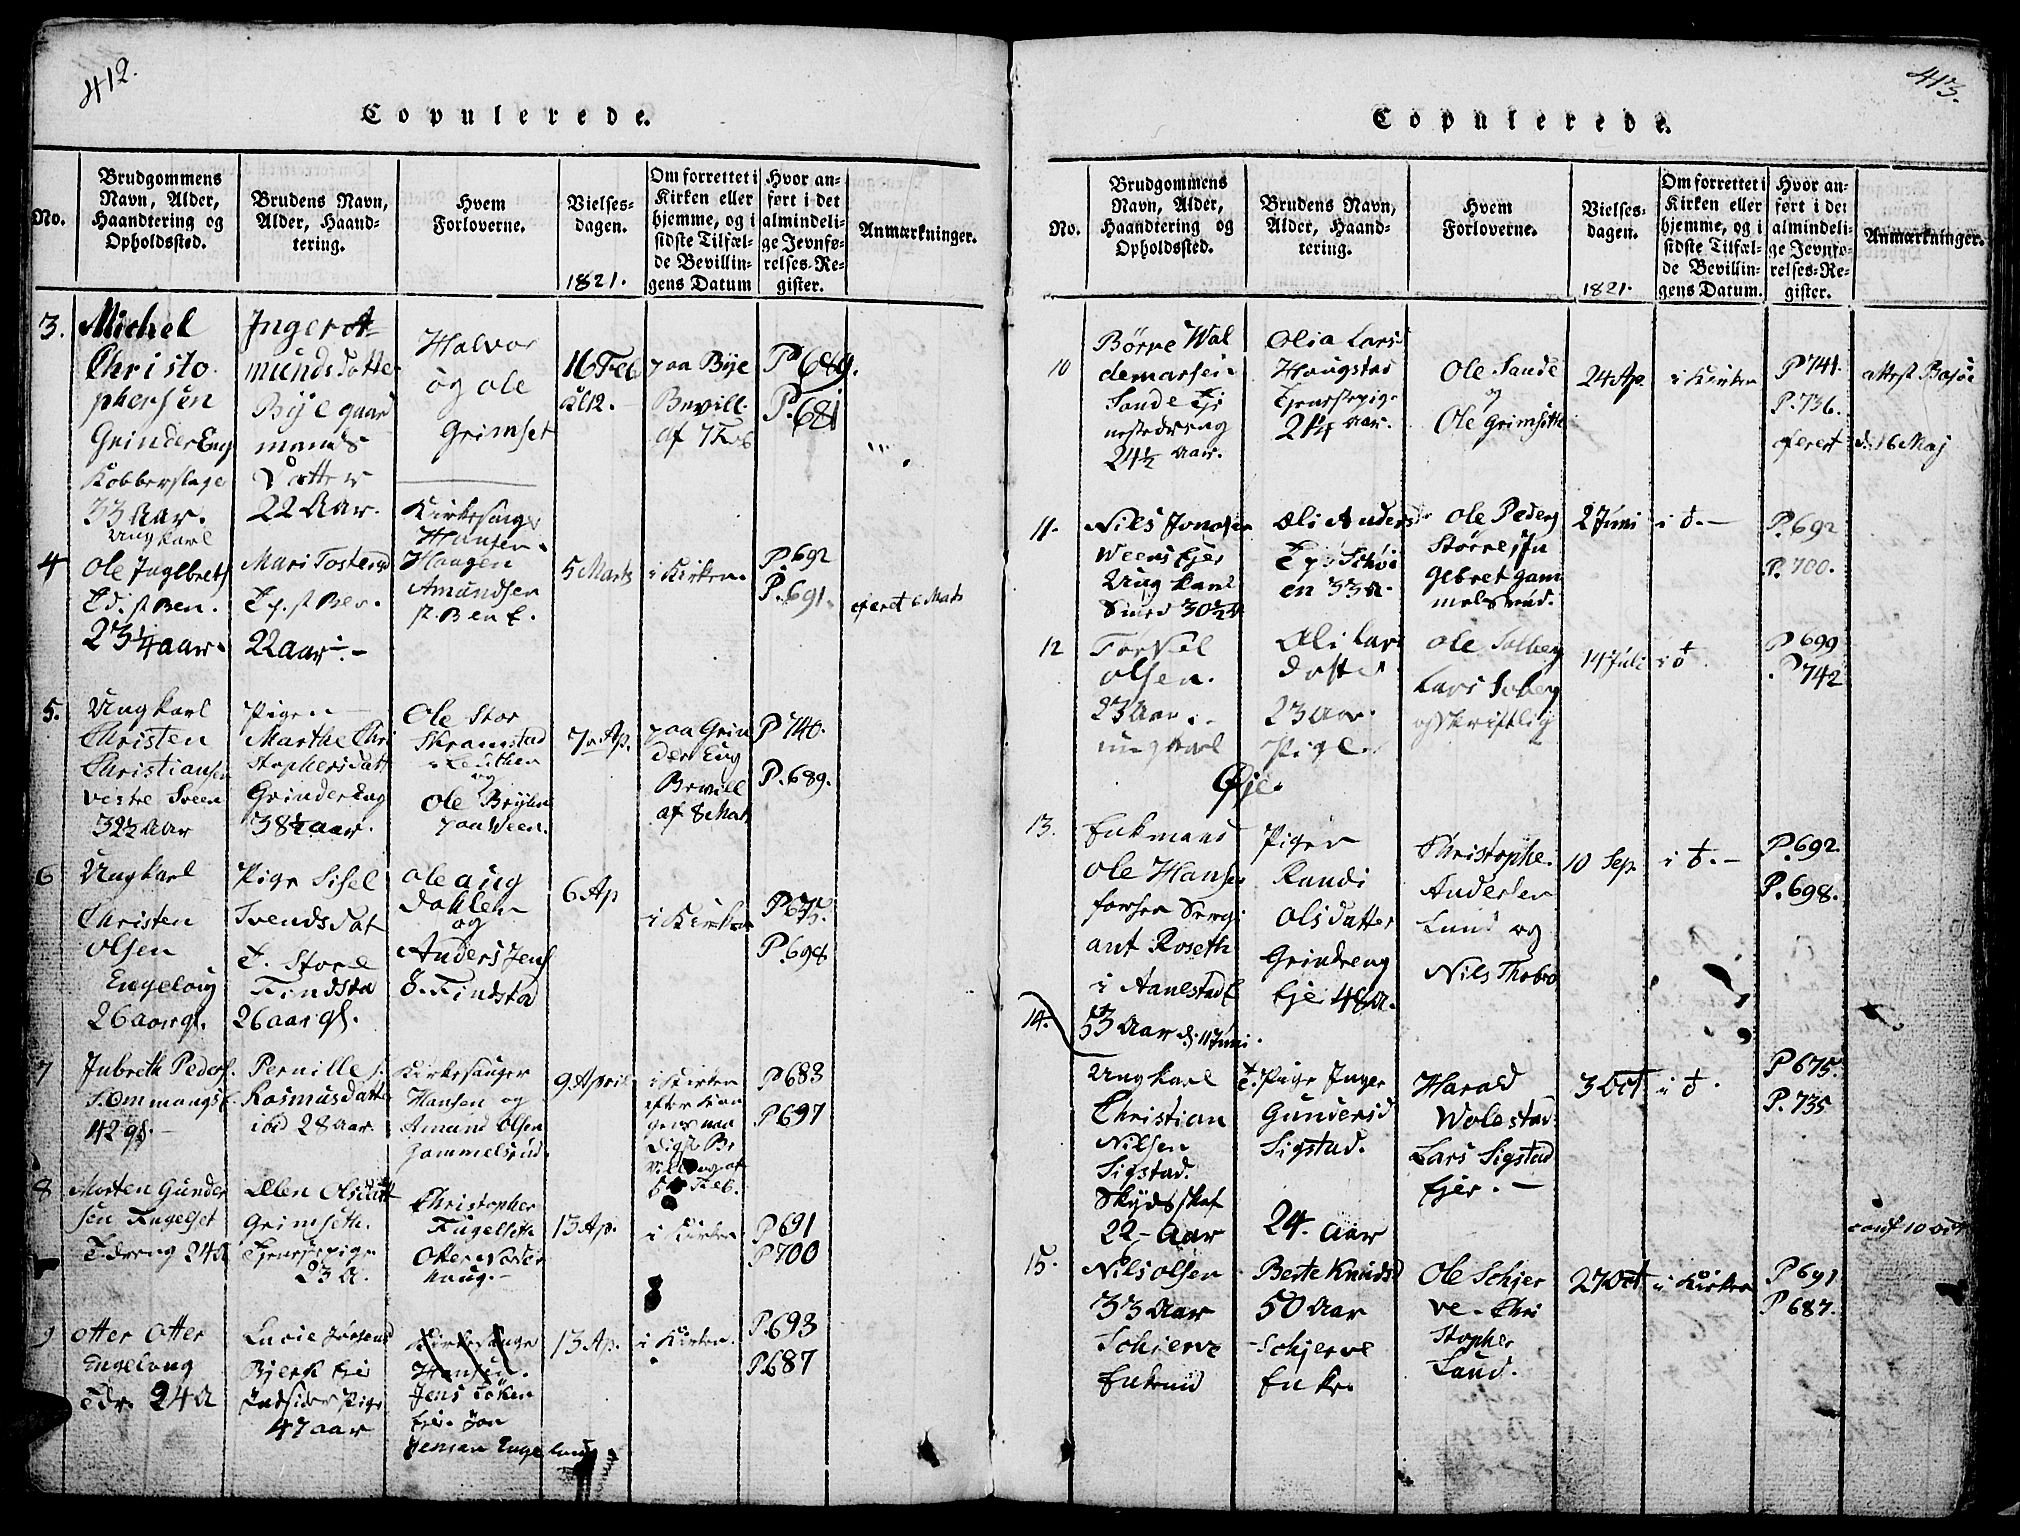 412.
Copulerede.
No.
Brudgommens
Navn, Alder,
Haandtering og
Opholdssted.
Brudens Navn,
Alder, Haand-
tering.
Hvem
Forloverne.
Vielses-
dagen.
1821.
Om forrettet i
Kirken eller
hjemme, og i
sidste Tilfæl-
de Bevillin-
gens Datum
Hvor an-
ført i det
almindeli-
ge Jevnfø-
relses-Re-
gister.
Anmærkninger.
3.
Michel
Christo
phersen
Grinder Eng
Kobberslage
33 Aar.
Ungkarl
Inger A
munds datter
Bye gaar
mands
Datter
22 Aar.
Halvor
og ole
Grimset
Kirkesanger
Hansen.
16 Feb
Kl 12.
paa Bye
Bevill.
af 7 Feb
P. 689.
P. 681
4
Ole Ingebrets
23 1/4 aar.
Mari Tostensd
22 aar
Haugen
Amundsen
5 Marts
i Kirken.
P. 692
P. 691.
5.
Ungkarl
Christen
Christiansen
vestre Sveen
32½ Aar
Pigen
Marthe Chri
stophersdatt
Grinder Eng
38½ aar.
Ole Stor
Skramstad
i Leuthen
og
Ole Brylen
paa Ween.
7 Ap.
paa Grin
der Eng
Bevill
af 8 Mat.
P 740.
P. 689.
6
Ungkarl
Christen
olsen
Engelaug
26 aar gl.
Pige Sisel
Svendsdat
T. Store
Findsta
26 aar gl.
ole aug
Dahlen
og
Anders Jens
S. Findsta
6 Ap
i Kirken
P 675.
P. 698
7
Jubreth Peders.
42 gl.
Pernille
Rasmusdatter
ibid 28 Aar
Kirkesanger
Hansen og
Amund Olsen
Gammelsrud.
9. April
i Kirken
P 683
P 697
8
Morten Gunder
sen Fugelset
Tdreng 24 A
Ellen Olsdatt
Grimseth.
Tjenestepige
23 A.
Christopher
Fugelseth
13 Ap.
i Kirken
P 691
P 700
9
Otter Otter
Engelaug
Tdr. 24 A
Lucie Jørgensd
Bjerk Eje
Indsidder Pige
47 aar
Kirkesanger
Hansen.
Jens Løken
Eje. Jon
Jensen Engelaug
13 Ap.
i Kirken.
P. 693
P 687
413.
Copulerede.
No.
Brudgommens
Navn, Alder,
Haandtering og
Opholdssted.
Brudens Navn,
Alder, Haand-
tering.
Hvem
Forloverne.
Vielses-
dagen.
1821.
Om forrettet i
Kirken eller
hjemme, og i
sidste Tilfæl-
de Bevillin-
gens Datum.
Hvor an-
ført i det
almindeli-
ge Jevnfø-
relses-Re-
gister.
Anmærkninger.
10
Børre Wal
demarsen
Sande Tje
nestedreng
24½ Aar.
Olia Lars
Haugstad
Tjenestepige
21¼ Aar.
Ole Sande
og
Ole Grimseth
24 Ap.
i Kirken
P 741.
P. 736.
d. 16 Maj
11.
Nils Jonasen
Weens Ejer
Ung karl
Smed 30½ A
Eli Anders
en 33 A.
Ole Peders
Større, In
gebret Gam
melsrud.
2 Juni
i d.
P. 692
P. 700.
12
Torkil
olsen.
23 Aar.
ungkarl
Eli Lars
datter
23 Aar.
Pige
Ole Solberg
Lars Soberg
og skriftlig
14 Juli
i d.
P 699
P 742
Øje.
13.
Enkmand
Ole Hansen
forhen Sergi
ant Roseth
i Aanestad E
53 Aar d. 11 Juni.
Pigen
Randi
olsdatter
Grindeeng
Eje 48 A.
Christophe
Andersen
Lund og
Nils Thobro
10 Sep.
i d.
P. 692.
P. 698.
14.
Ungkarl
Christian
Nilsen
Sigstad.
Skydsskaf
22 Aar
Pige Inger
Gundersd
Sigstad.
24. Aar
Harald
Wolestad
Lars Sigstad
Ejer.
3 Oct
i d.
P 675.
P. 735
conf 10 Oct
15.
Nils olsen
33 Aar
Schjerve
Enkmd
Berte Knudsd
50 Aar
Schjerve
Enke.
Ole Schjer
ve. Chri
stopher
Laud.
27 Oct
i Kirken
P 691
P 687.